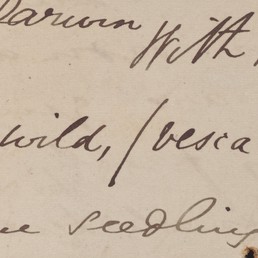 Darwin With
wild, (vesca
seedling